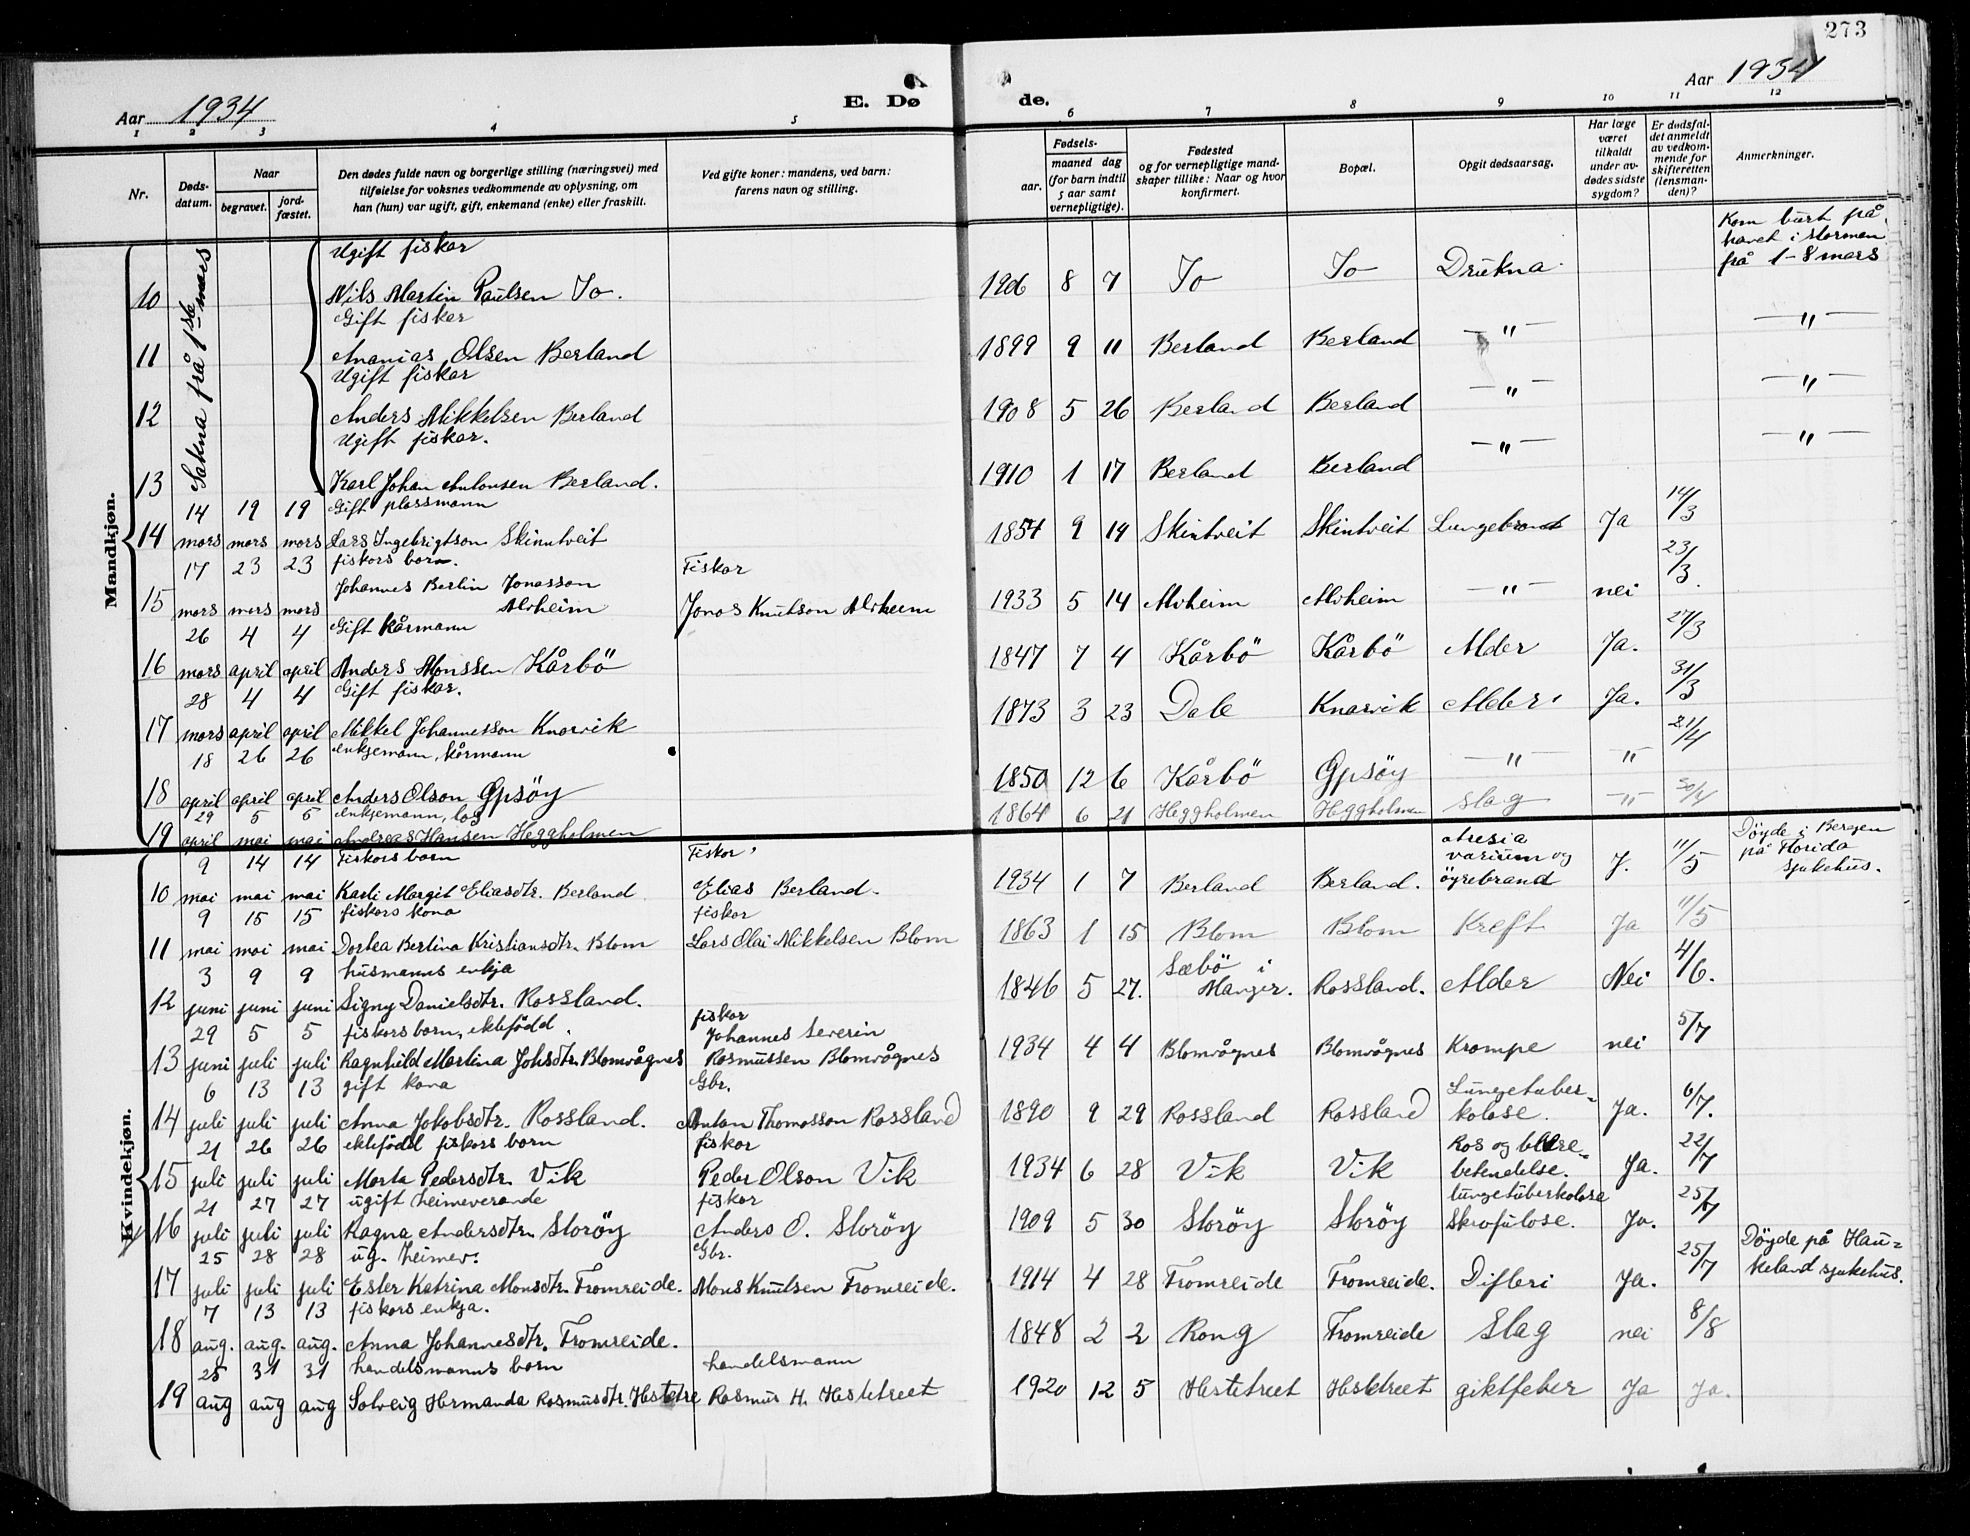 273
Aar 1934
E. Dø de.
Aar 1934
1 2 3 4 5 6 7 8 9 10 11 12
Nr.
Døds-datum.
Naar
begravet.
jord-fæstet.
Den dødes fulde navn og borgerlige stilling (næringsvei) med
tilføielse for voksnes vedkommende av oplysning, om
han (hun) var ugift, gift, enkemand (enke) eller fraskilt.
Ved gifte koner: mandens, ved barn:
farens navn og stilling.
Fødsels-
aar.
maaned dag
(for barn indtil
5 aar samt
vernepligtige).
Fødested
og for vernepligtige mand-
skaper tillike: Naar og hvor
konfirmert.
Bopæl.
Opgit dødsaarsag.
Har læge
været
tilkaldt
under av-
dødes sidste
sygdom?
Er dødsfal-
det anmeldt
av vedkom-
mende for
skifteretten
(lensman-
den)?
Anmerkninger.
Mandkjøn.
Sakna frå 1ste mars
Ugift fiskar
10 Nils Martin Paulsen Jo. 1906 8 7 Jo Jo Drukna Kom burt på
havet i stormen
frå 1-8 mars
Gift fiskar
11 Ananias Olsen Berland 1899 9 11 Berland Berland — " — — " —
Ugift fiskar
12 Anders Mikkelsen Berland 1908 5 26 Berland Berland — " — — " —
Ugift fiskar.
13 Karl Johan Antonsen Berland. 1910 1 17 Berland Berland — " — — " —
14 19 19 Gift plassmann
14 mars mars mars Lars Ingebrigtson Skinntveit 1854 9 19 Skintveit Skintveit Lungebrand Ja 14/3
17 23 23 fiskars born. Fiskar
15 mars mars mars Johannes Berlin Jonasson
Alvheim Jonas Knutson Alvheim 1933 5 14 Alvheim Alvheim — " — nei 23/3.
26 4 4 Gift kårmann
16 mars april april Anders Monssen Kårbö 1847 7 4 Kårbö Kårbö Alder Ja. 27/3
28 4 4 Gift fiskar.
17 mars april april Mikkel Johannesson Knarvik 1873 3 23 Dale Knarvik Alder Ja. 31/3
18 26 26 enkjemann, kårmann
18 april april april Anders Olson Gpsöy 1850 12 6 Kårbö Gpsöy — " — — " — 21/4
29 5 5 enkjemann, los
19 april mai mai Andreas Hansen Heggholmen 1864 6 21 Heggholmen Heggholmen slag — " — 30/4
Kvindekjøn.
9 14 14 Fiskars born Fiskar
10 mai mai mai Karli Margit Eliasdtr. Berland Elias Berland. 1934 1 7 Berland Berland. atresia
varium og
öyrebrand J. 11/5 Döyde i Bergen
på Florida
sjukehus.
9 15 15 fiskars kona fiskar
11 mai mai mai Dortea Bertina Kristiansdtr. Blom Lars Olai Mikkelsen Blom 1863 1 15 Blom Blom Kreft Ja 11/5
3 9 9 husmanns enkja
12 juni juni juni Signy Danielsdtr. Rossland. 1846 5 27. Sæbö i
Manger. Rossland. Alder Nei 4/6.
29 5 5 fiskars born, ektefödd. fiskar
13 juni juli juli Ragnhild Martina Johsdtr. Blomvågnes Johannes Severin
Rasmussen Blomvågnes 1934 4 4 Blomvågnes Blomvågnes Krampe nei 5/7
6 13 13 gift kona Gbr.
14 juli juli juli Anna Jakobsdtr. Rossland. Anton Thomasson Rossland 1890 9 29 Rossland Rossland Lungetuber-
kolose. Ja. 6/7.
21 26 26 ektefödd fiskars born fiskar
15 juli juli juli Marta Pedersdtr. Vik Peder Olson Vik 1934 6 28 Vik Vik Ros og blære-
betendelse. Ja. 22/7
21 27 27 ugift heimeverande fiskar
16 juli juli juli Ragna Andersdtr. Storöy Anders O. Storöy 1909 5 30 Storöy Storöy lungetuberkolose
Skrofulose. Ja. 25/7
25 28 28 ug. heimev. Gbr.
17 juli juli juli Ester Katrina Monsdtr. Fromreide. Mons Knutsen Fromreide. 1914 4 28 Fromreide Fromreide. Difteri Ja. 25/7 Döyde på Hau-
keland sjukehus.
7 13 13 fiskars enkja.
18 aug. aug. aug. Anna Johannesdtr. Fromreide. 1848 2 2 Rong Fromreide Slag nei 8/8
25 31 31 handelsmanns born handelsmann
19 aug aug aug Solveig Hermanda Rasmusdtr. Hestetre Rasmus H. Hestetreet 1920 12 5 Hestetreet Hestetreet giktfeber Ja Ja.